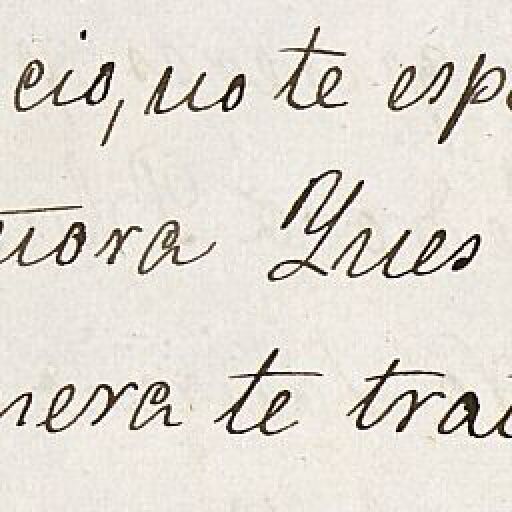 cio, no te esp
ñora Ynes
nera te trat